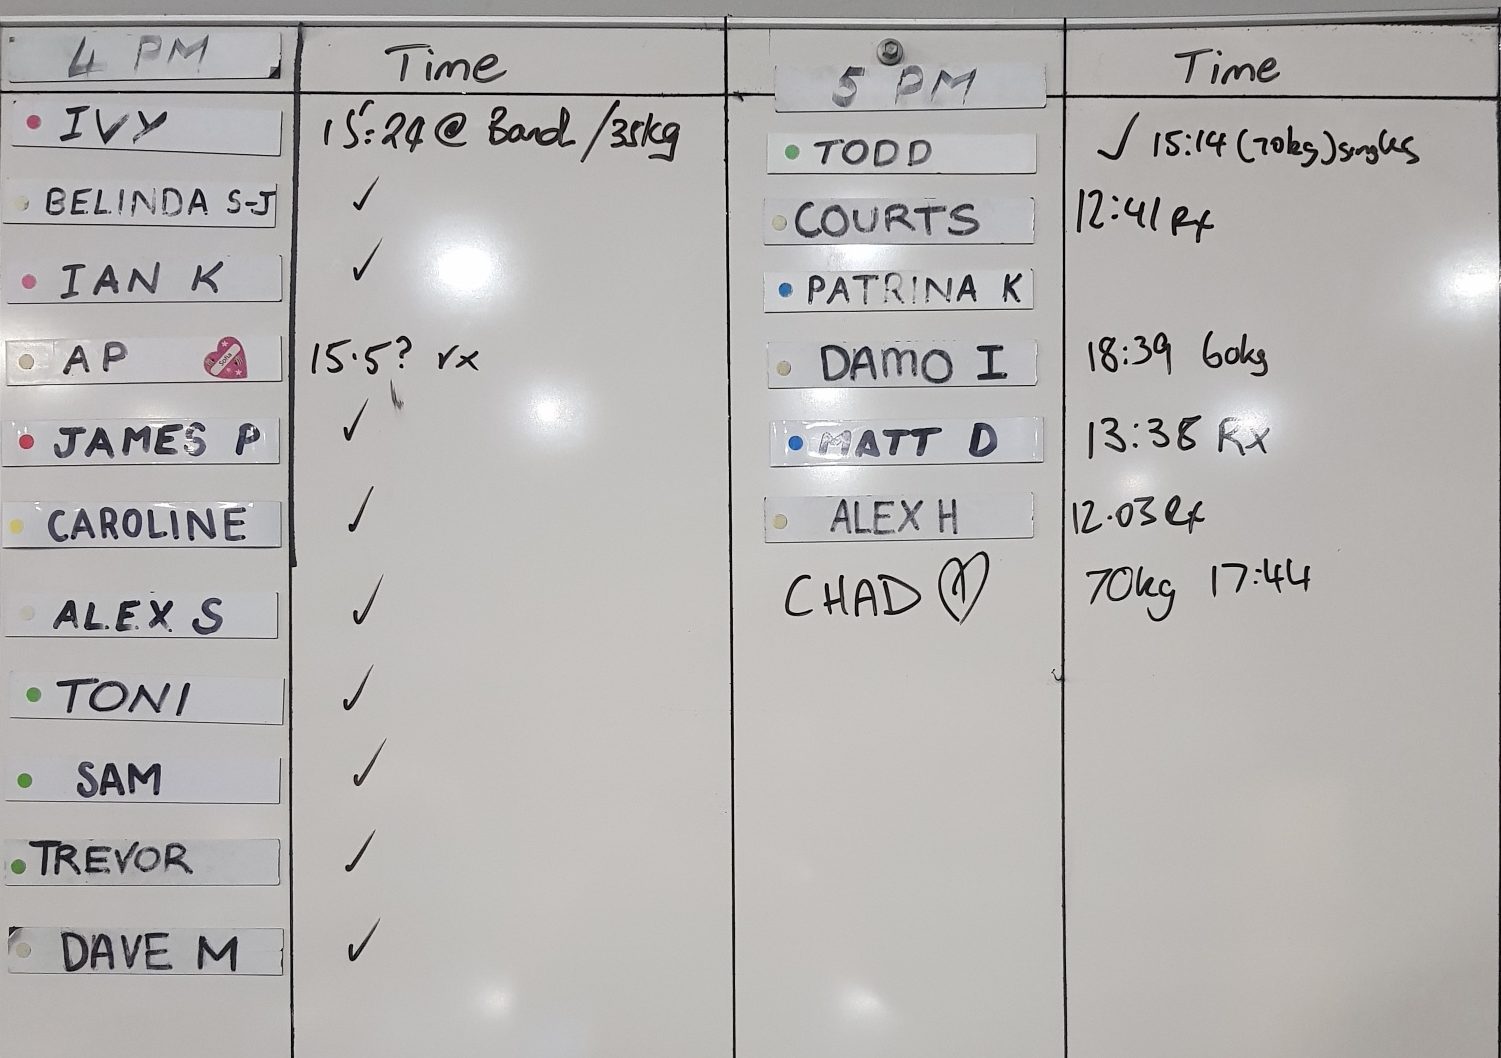 4 PM Time
IVY 15:24 @ Band /35kg
BELINDA S-J ✓
IAN K ✓
AP Sofia 15.5? rx
JAMES P ✓
CAROLINE ✓
ALEX S ✓
TONI ✓
SAM ✓
TREVOR ✓
DAVE M ✓
5 PM Time
TODD ✓ 15:14 (70kg) singles
COURTS 12:41 Rx
PATRINA K
DAMO I 18:39 60kg
MATT D 13:38 Rx
ALEX H 12.03 Rx
CHAD 70kg 17:44